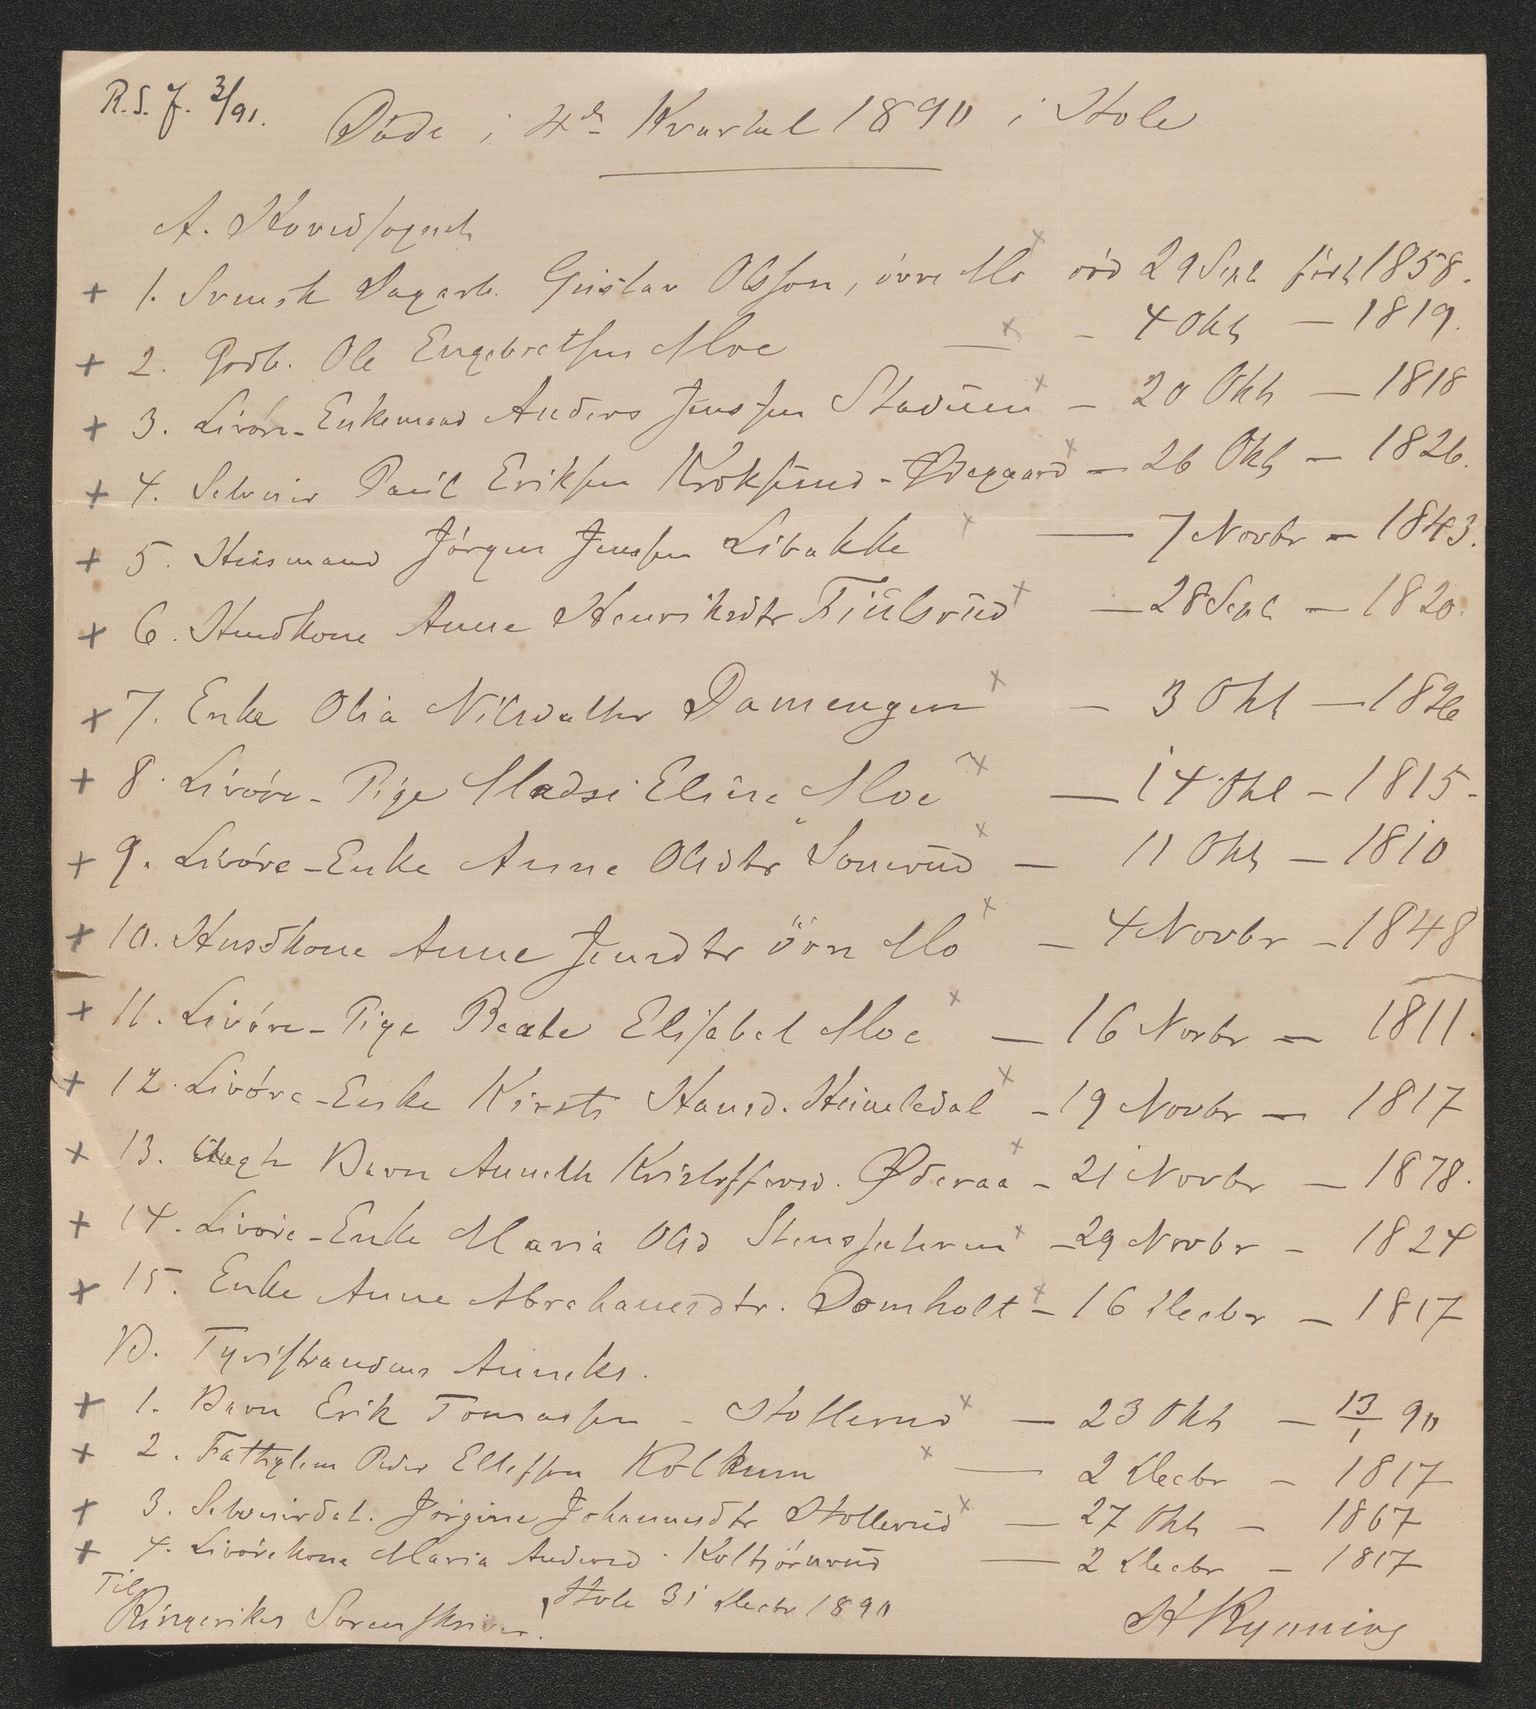 R.S.J. 3/91.
Döde i 4de Kvartal 1890 i Hole
A. Hovedsognet
+ 1. Svensk Dagarb. Gustav Olsson, övre Mo x död 29 Sept född 1858.
+ 2. Grdb. Ole Engebretsen Moe — x — 4 Okt — 1819.
+ 3. Livöre-Enkemand Anders Jenssen Stadum x — 20 Okt — 1818
+ 4. Selveier Paul Eriksen Kroksund-Ødegaard x — 26 Okt — 1826.
+ 5. Husmand Jörgen Jenssen Libakke x — 7 Novbr — 1843.
+ 6. Husdkone Anne Henriksdtr Fjulsrud x — 28 Sept — 1820.
+ 7. Enke Olia Nilsdatter Damengen x — 3 Okt — 1826
+ 8. Livöre-Pige Madsi Eline Moe x — 14 Okt — 1815.
+ 9. Livöre-Enke Anne Olsdtr Sonerud x — 11 Okt — 1810
+ 10. Husdkone Anne Jensdtr övre Mo x — 4 Novbr — 1848
+ 11. Livöre-Pige Beate Elisabet Moe x — 16 Novbr — 1811.
+ 12. Livöre-Enke Kirsti Hansd. Heieledal x — 19 Novbr — 1817
+ 13. Uægte Barn Annette Kristoffersd. Øderaa x — 21 Novbr — 1878.
+ 14. Livöre-Enke Maria Olsd Stensseteren x — 29 Novbr — 1824
+ 15. Enke Anne Abrahamsdtr. Domholt x — 16 Decbr — 1817
B. Tyristrandens Anneks.
+ 1. Barn Erik Tomassen — Hollerud x — 23 Okt — 13/1 90
+ 2. Fattiglem Peder Ellefsen Kolkinn x — 2 Decbr — 1817
+ 3. Selveierdat. Jörgine Johannesdtr Hollerud x — 27 Okt — 1867
+ 4. Livörekone Maria Andersd. Koltjörnrud — 2 Decbr — 1817
Til
Ringerikes Sorenskriver. Hole 31 Decbr 1890 H Rynning